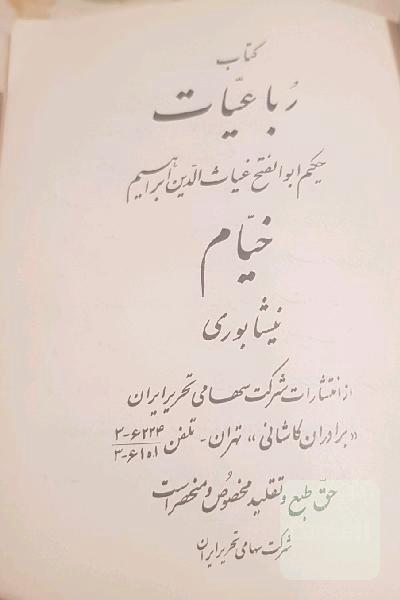 کتاب
رباعیّات
حکیم ابوالفتح غیاث الدّین ابراهیم
خیّام
نیشابوری
از انتشارات شرکت سهامی تحریر ایران
«برادران کاشانی» تهران - تلفن ۶۲۲۴-۲
۶۱۵۱-۲
حقّ طبع و تقلید مخصوص و منحصر است
شرکت سهامی تحریر ایران